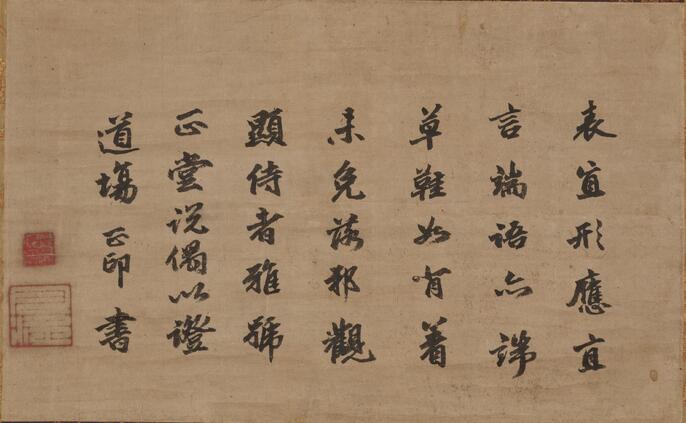 表直形應直
言端語亦
草鞋如有著
未免落邪觀
顯侍者雅號
正堂説偈以證
道場 正印 書